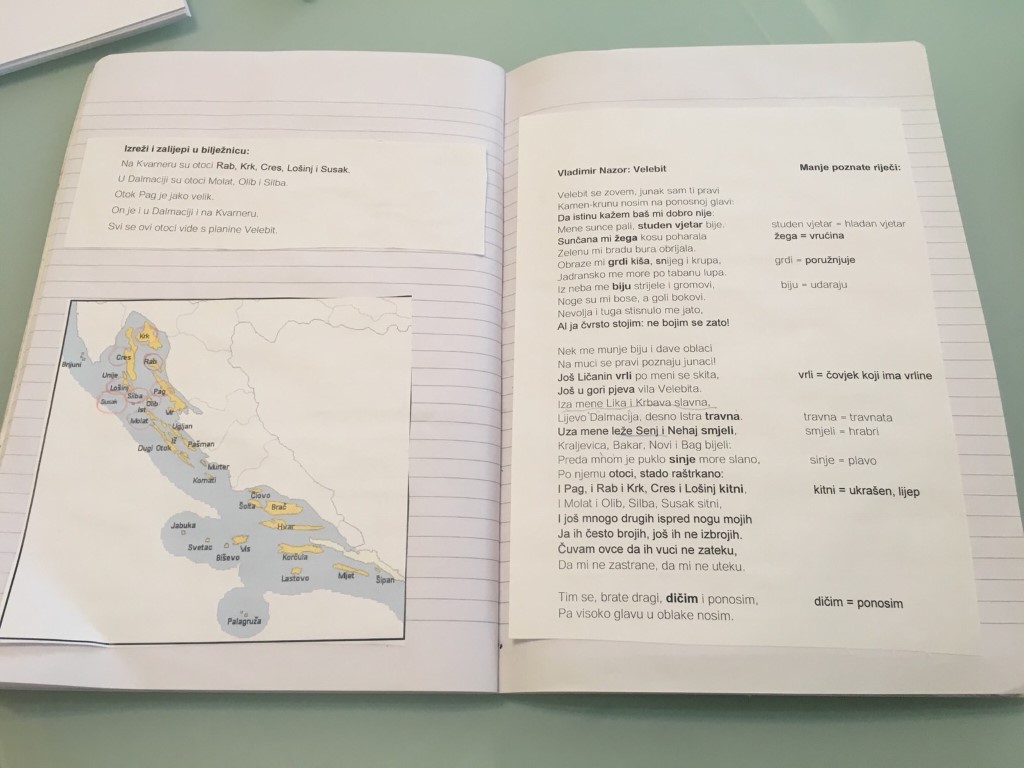 Izreži i zalijepi u bilježnicu:
Na Kvarneru su otoci Rab, Krk, Cres, Lošinj i Susak.
U Dalmaciji su otoci Molat, Olib i Silba.
Otok Pag je jako velik.
On je i u Dalmaciji i na Kvarneru.
Svi se ovi otoci vide s planine Velebit.
Krk
Brijuni
Cres
Rab
Unije
Lošinj
Pag
Silba
Susak
Olib
Ist
Vir
Molat
Ugljan
Iž
Dugi Otok
Pašman
Murter
Kornati
Čiovo
Šolta
Brač
Jabuka
Hvar
Svetac
Vis
Biševo
Korčula
Lastovo
Mljet
Šipan
Palagruža
Vladimir Nazor: Velebit
Manje poznate riječi:
Velebit se zovem, junak sam ti pravi
Kamen-krunu nosim na ponosnoj glavi.
Da istinu kažem baš mi dobro nije:
Mene sunce pali, studen vjetar bije. studen vjetar = hladan vjetar
Sunčana mi žega kosu poharala žega = vrućina
Zelenu mi bradu bura obrijala.
Obraze mi grdi kiša, snijeg i krupa, grdi = poružnjuje
Jadransko me more po tabanu lupa.
Iz neba me biju strijele i gromovi, biju = udaraju
Noge su mi bose, a goli bokovi.
Nevolja i tuga stisnulo me jato,
Al ja čvrsto stojim: ne bojim se zato!
Nek me munje biju i dave oblaci
Na muci se pravi poznaju junaci!
Još Ličanin vrli po meni se skita, vrli = čovjek koji ima vrline
Još u gori pjeva vila Velebita.
Iza mene Lika i Krbava slavna,
Lijevo Dalmacija, desno Istra travna. travna = travnata
Uza mene leže Senj i Nehaj smjeli, smjeli = hrabri
Kraljevica, Bakar, Novi i Bag bijeli;
Preda mnom je puklo sinje more slano, sinje = plavo
Po njemu otoci, stado raštrkano:
I Pag, i Rab i Krk, Cres i Lošinj kitni, kitni = ukrašen, lijep
I Molat i Olib, Silba, Susak sitni,
I još mnogo drugih ispred nogu mojih
Ja ih često brojih, još ih ne izbrojih.
Čuvam ovce da ih vuci ne zateku,
Da mi ne zastrane, da mi ne uteku.
Tim se, brate dragi, dičim i ponosim, dičim = ponosim
Pa visoko glavu u oblake nosim.